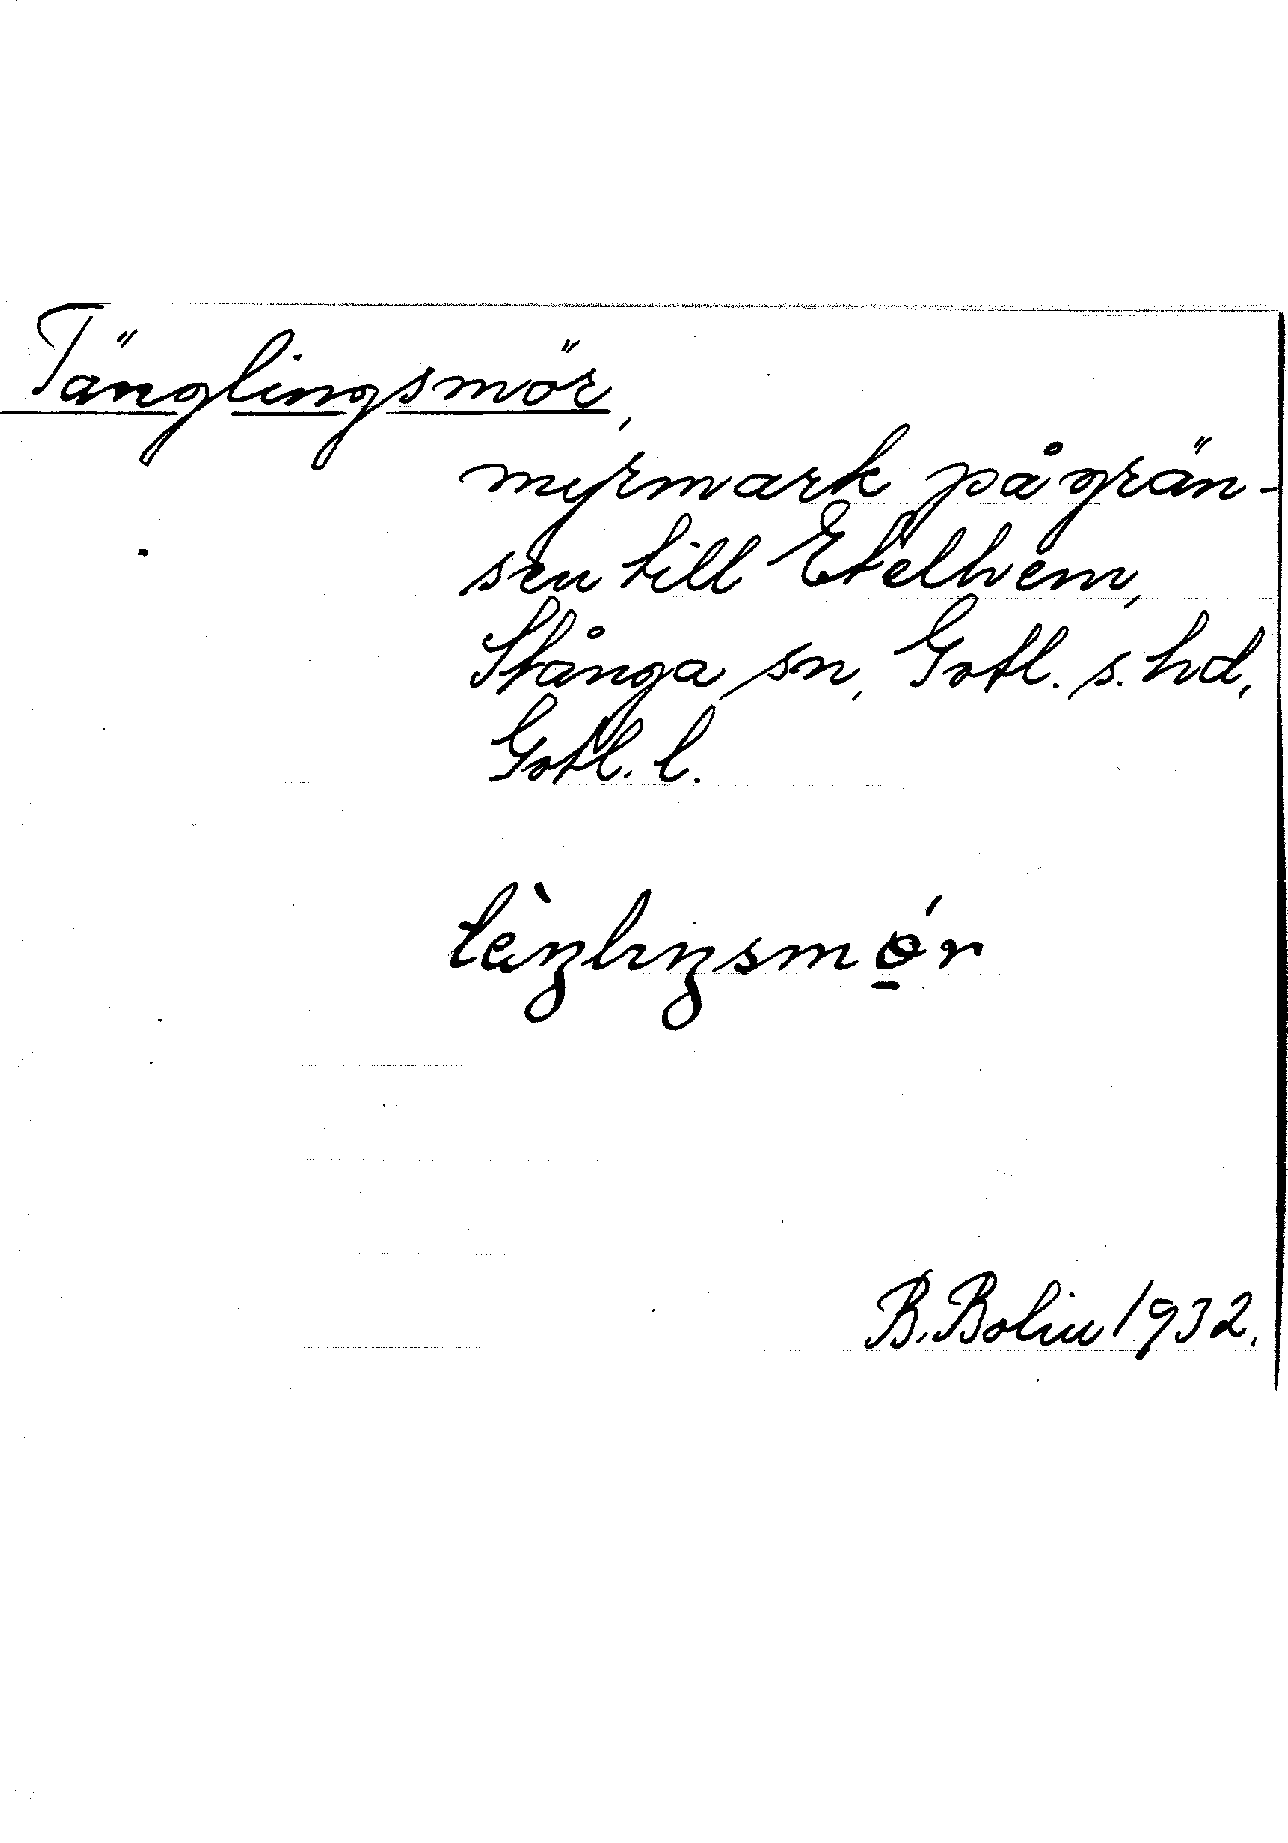 Tänglingsmör,
myrmark på grän-
sen till Etelhem,
Stånga sn, Gotl. s. hd,
Gotl. l.
tèŋlıŋsmǿ̱r
B. Bolin 1932.